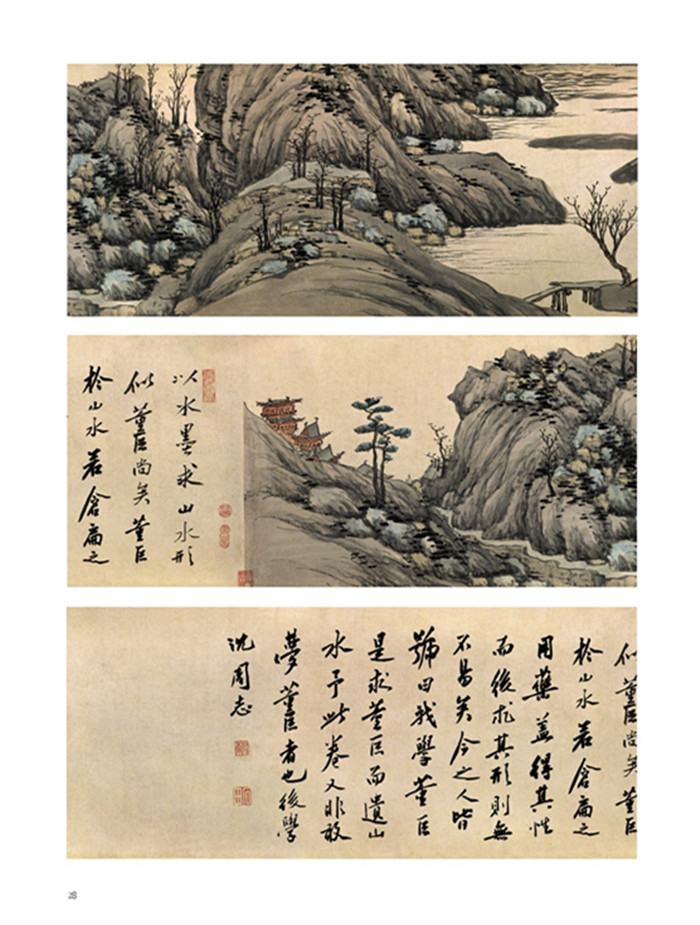 以水墨求山水形
似董巨尚矣董巨
於山水若倉扁之
似董巨尚矣董巨
於山水若倉扁之
用藥蓋得其性
而後求其形則無
不易矣今之人皆
號曰我學董巨
是求董巨而遺山
水予此卷又非敢
夢董巨者也後學
沈周志